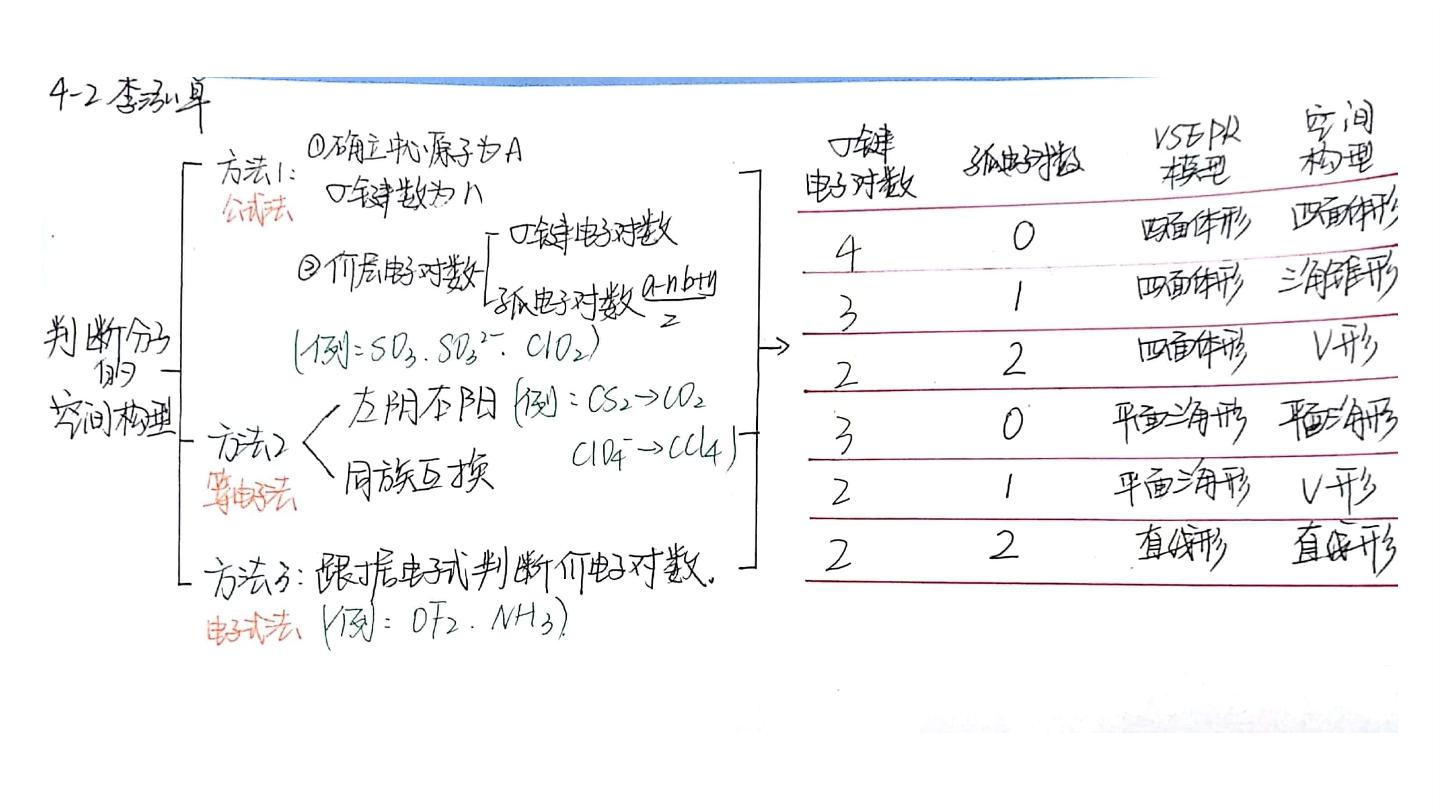 4-2 李泓卓
判断分子
的
空间构型
方法1:
公式法
①确立中心原子为A
σ键数为n
②价层电子对数
σ键电子对数
孤电子对数 a-nb+n/2
(例:SO₃. SO₃²⁻. ClO₂)
方法2
等电子法
左阴右阳 (例: CS₂→CO₂
ClO₄⁻→CCl₄)
同族互换
方法3: 跟据电子式判断价电子对数.
电子式法 (例: OF₂. NH₃)
σ键 孤电子对数 VSEPR 空间
电子对数 模型 构型
4 0 四面体形 四面体形
3 1 四面体形 三角锥形
2 2 四面体形 V形
3 0 平面三角形 平面三角形
2 1 平面三角形 V形
2 2 直线形 直线形